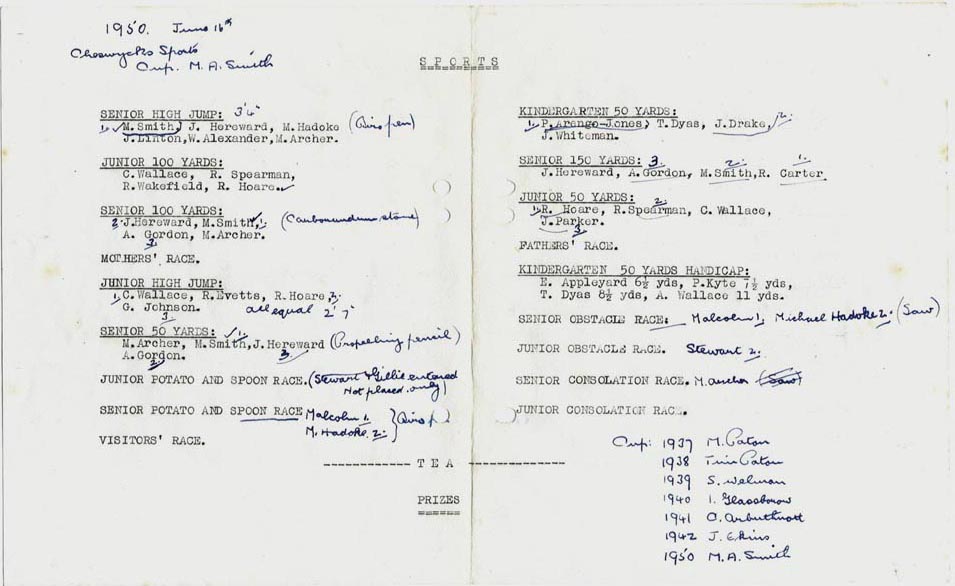 1950. June 16th
Cheswycks Sports
Cup. M. A. Smith
SPORTS
SENIOR HIGH JUMP: 3'4"
1. M.Smith, J. Hereward, M.Hadoke (Biro pen)
J.Linton, W.Alexander, M.Archer.
JUNIOR 100 YARDS:
C.Wallace, R. Spearman,
R.Wakefield, R. Hoare.
SENIOR 100 YARDS:
2. J.Hereward, M.Smith, 1. (Carborundum stone)
A. Gordon, M.Archer.
3.
MOTHERS' RACE.
JUNIOR HIGH JUMP:
1. C.Wallace, R.Evetts, R.Hoare 2.
G. Johnson. all equal 2'7"
3.
SENIOR 50 YARDS: 1.
M.Archer, M.Smith, J.Hereward (Propelling pencil)
A.Gordon. 3.
2.
JUNIOR POTATO AND SPOON RACE. (Stewart & Gillie entered
Not placed only)
SENIOR POTATO AND SPOON RACE Malcolm 1.
M. Hadoke 2. } Biro p
VISITORS' RACE.
KINDERGARTEN 50 YARDS:
1. P.Arengo-Jones, T.Dyas, J.Drake, 2.
J.Whiteman.
SENIOR 150 YARDS: 3. 2. 1.
J.Hereward, A.Gordon, M.Smith, R. Carter
JUNIOR 50 YARDS: 2.
1. R. Hoare, R.Spearman, C. Wallace,
J.Parker. 3.
FATHERS' RACE.
KINDERGARTEN 50 YARDS HANDICAP:
E. Appleyard 6½ yds, P.Kyte 7½ yds,
T. Dyas 8½ yds, A. Wallace 11 yds.
SENIOR OBSTACLE RACE: Malcolm 1. Michael Hadoke 2. (Saw)
JUNIOR OBSTACLE RACE. Stewart 2.
SENIOR CONSOLATION RACE. M. Archer (Saw)
JUNIOR CONSOLATION RACE.
Cup: 1937 M. Paton
1938 Tim Paton
1939 S. Welman
1940 I. Glassborow
1941 C. Arbuthnott
1942 J. Ekins
1950 M.A. Smith
TEA
PRIZES